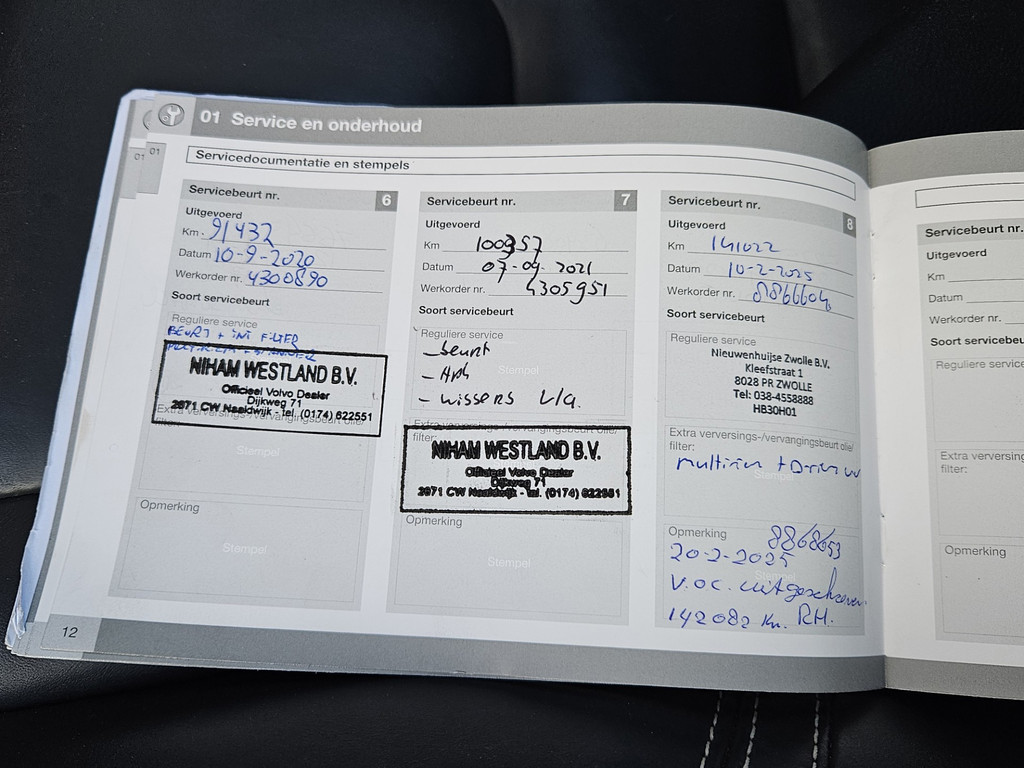 01 Service en onderhoud
01
01
Servicedocumentatie en stempels
Servicebeurt nr. 6
Uitgevoerd
Km 91432
Datum 10-9-2020
Werkorder nr. 4300890
Soort servicebeurt
Reguliere service
BEURT + INT FILTER
NIHAM WESTLAND B.V.
Officieel Volvo Dealer
Dijkweg 71
2671 CW Naaldwijk - tel. (0174) 622551
Extra verversings-/vervangingsbeurt olie/
filter:
Stempel
Opmerking
Stempel
12
Servicebeurt nr. 7
Uitgevoerd
Km 100357
Datum 07-09-2021
Werkorder nr. 4305951
Soort servicebeurt
Reguliere service
- beurt
- APK
Stempel
- wissers V/a.
Extra verversings-/vervangingsbeurt olie/
filter:
NIHAM WESTLAND B.V.
Officieel Volvo Dealer
Dijkweg 71
2671 CW Naaldwijk - tel. (0174) 622551
Opmerking
Stempel
Servicebeurt nr. 8
Uitgevoerd
Km 141022
Datum 10-2-2025
Werkorder nr. 8866604
Soort servicebeurt
Reguliere service
Nieuwenhuijse Zwolle B.V.
Kleefstraat 1
8028 PR ZWOLLE
Tel: 038-4558888
HB30H01
Extra verversings-/vervangingsbeurt olie/
filter:
multiriem
Stempel
Opmerking 8868653
20-2-2025
V.O.C. uitgeschreven
142082 Km. RH.
Servicebeurt nr.
Uitgevoerd
Km
Datum
Werkorder nr.
Soort servicebeu
Reguliere service
Extra verversing
filter:
Opmerking